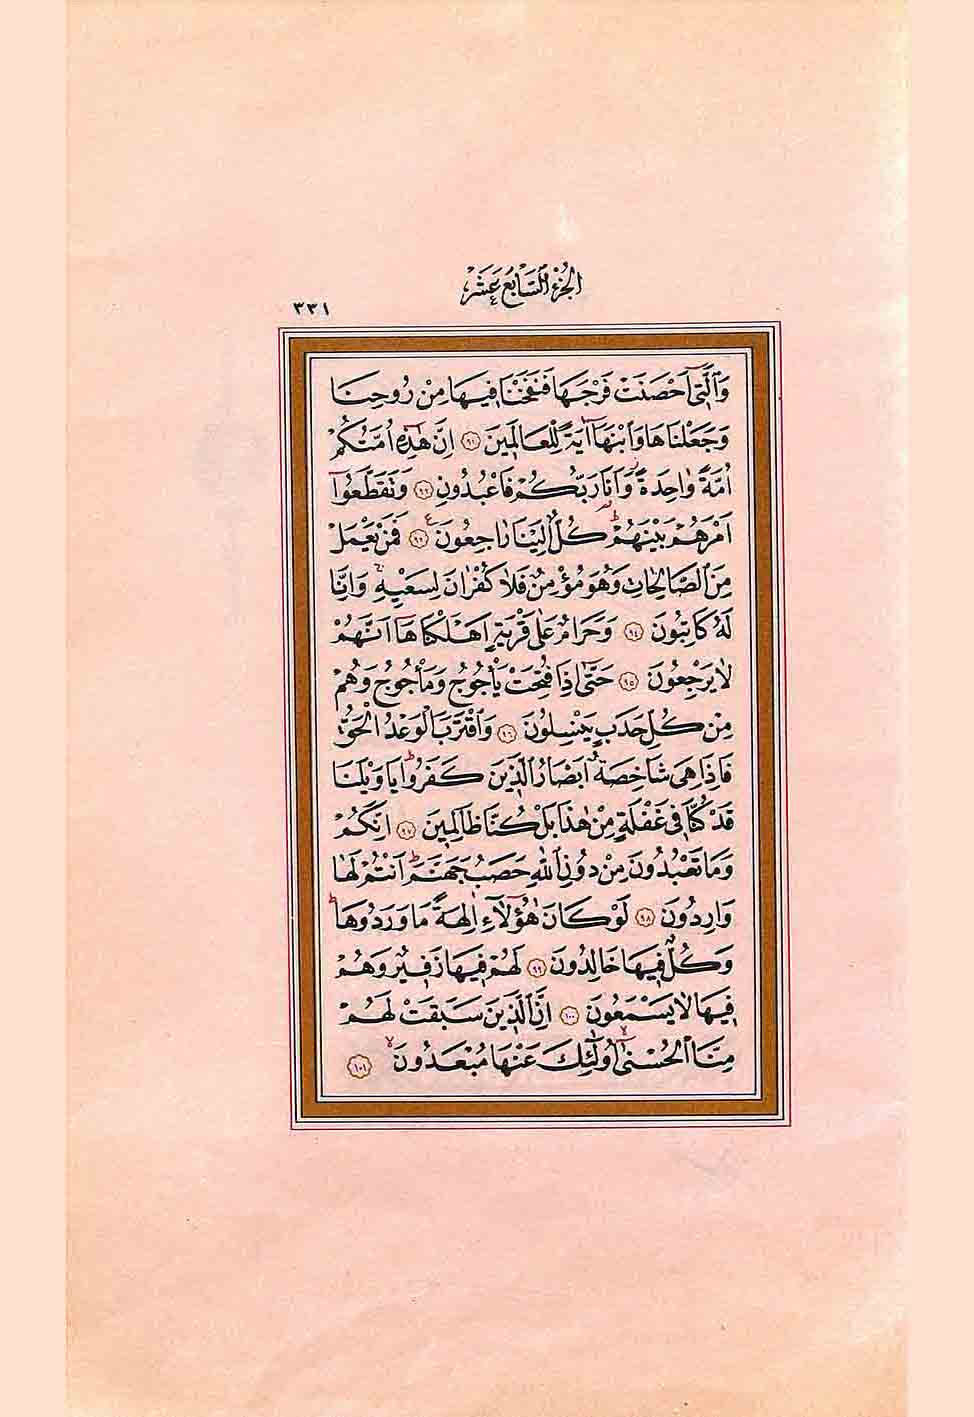 الجزء السابع عشر
٣٣١
وَالَّتٖٓي اَحْصَنَتْ فَرْجَهَا فَنَفَخْنَا فٖيهَا مِنْ رُوحِنَا
وَجَعَلْنَاهَا وَابْنَهَٓا اٰيَةً لِلْعَالَمٖينَ ٩١ اِنَّ هٰذِهٖٓ اُمَّتُكُمْ
اُمَّةً وَاحِدَةً وَاَنَا رَبُّكُمْ فَاعْبُدُونِ ٩٢ وَتَقَطَّعُٓوا
اَمْرَهُمْ بَيْنَهُمْ كُلٌّ اِلَيْنَا رَاجِعُونَ ٩٣ فَمَنْ يَعْمَلْ
مِنَ الصَّالِحَاتِ وَهُوَ مُؤْمِنٌ فَلَا كُفْرَانَ لِسَعْيِهٖ وَاِنَّا
لَهُ كَاتِبُونَ ٩٤ وَحَرَامٌ عَلٰى قَرْيَةٍ اَهْلَكْنَاهَٓا اَنَّهُمْ
لَا يَرْجِعُونَ ٩٥ حَتّٰٓى اِذَا فُتِحَتْ يَأْجُوجُ وَمَأْجُوجُ وَهُمْ
مِنْ كُلِّ حَدَبٍ يَنْسِلُونَ ٩٦ وَاقْتَرَبَ الْوَعْدُ الْحَقُّ
فَاِذَا هِيَ شَاخِصَةٌ اَبْصَارُ الَّذٖينَ كَفَرُوا يَا وَيْلَنَا
قَدْ كُنَّا فٖي غَفْلَةٍ مِنْ هٰذَا بَلْ كُنَّا ظَالِمٖينَ ٩٧ اِنَّكُمْ
وَمَا تَعْبُدُونَ مِنْ دُونِ اللّٰهِ حَصَبُ جَهَنَّمَ اَنْتُمْ لَهَا
وَارِدُونَ ٩٨ لَوْ كَانَ هٰٓؤُلَٓاءِ اٰلِهَةً مَا وَرَدُوهَا
وَكُلٌّ فٖيهَا خَالِدُونَ ٩٩ لَهُمْ فٖيهَا زَفٖيرٌ وَهُمْ
فٖيهَا لَا يَسْمَعُونَ ١٠٠ اِنَّ الَّذٖينَ سَبَقَتْ لَهُمْ
مِنَّا الْحُسْنٰٓى اُو۬لٰٓئِكَ عَنْهَا مُبْعَدُونَ ١٠١